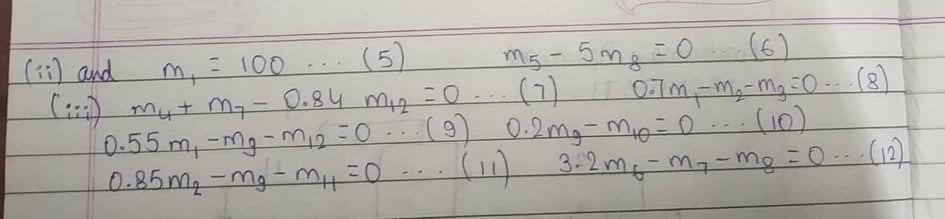 (ii) and m₁ = 100 ... (5) m₅ - 5m₈ = 0 ... (6)
(iii) m₄ + m₇ - 0.84 m₁₂ = 0 ... (7) 0.7m₁ - m₂ - m₃ = 0 ... (8)
0.55 m₁ - m₉ - m₁₂ = 0 ... (9) 0.2m₉ - m₁₀ = 0 ... (10)
0.85m₂ - m₉ - m₁₁ = 0 ... (11) 3.2m₆ - m₇ - m₈ = 0 ... (12)